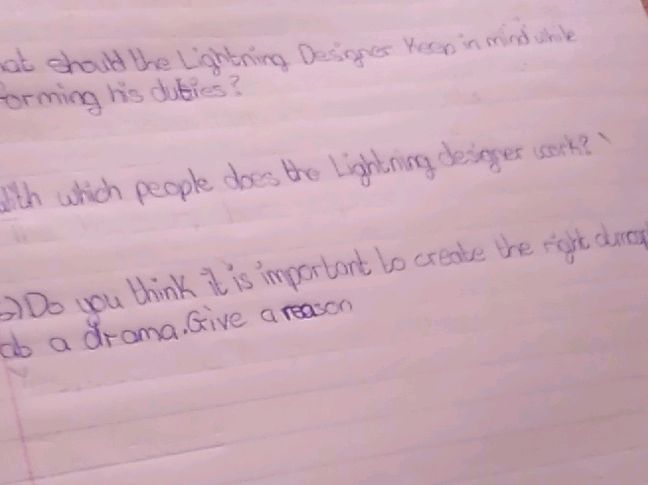 at should the Lightning Designer Keep in mind while
forming his duties?
With which people does the Lightning designer work?
Do you think it is important to create the right
at a drama. Give a reason